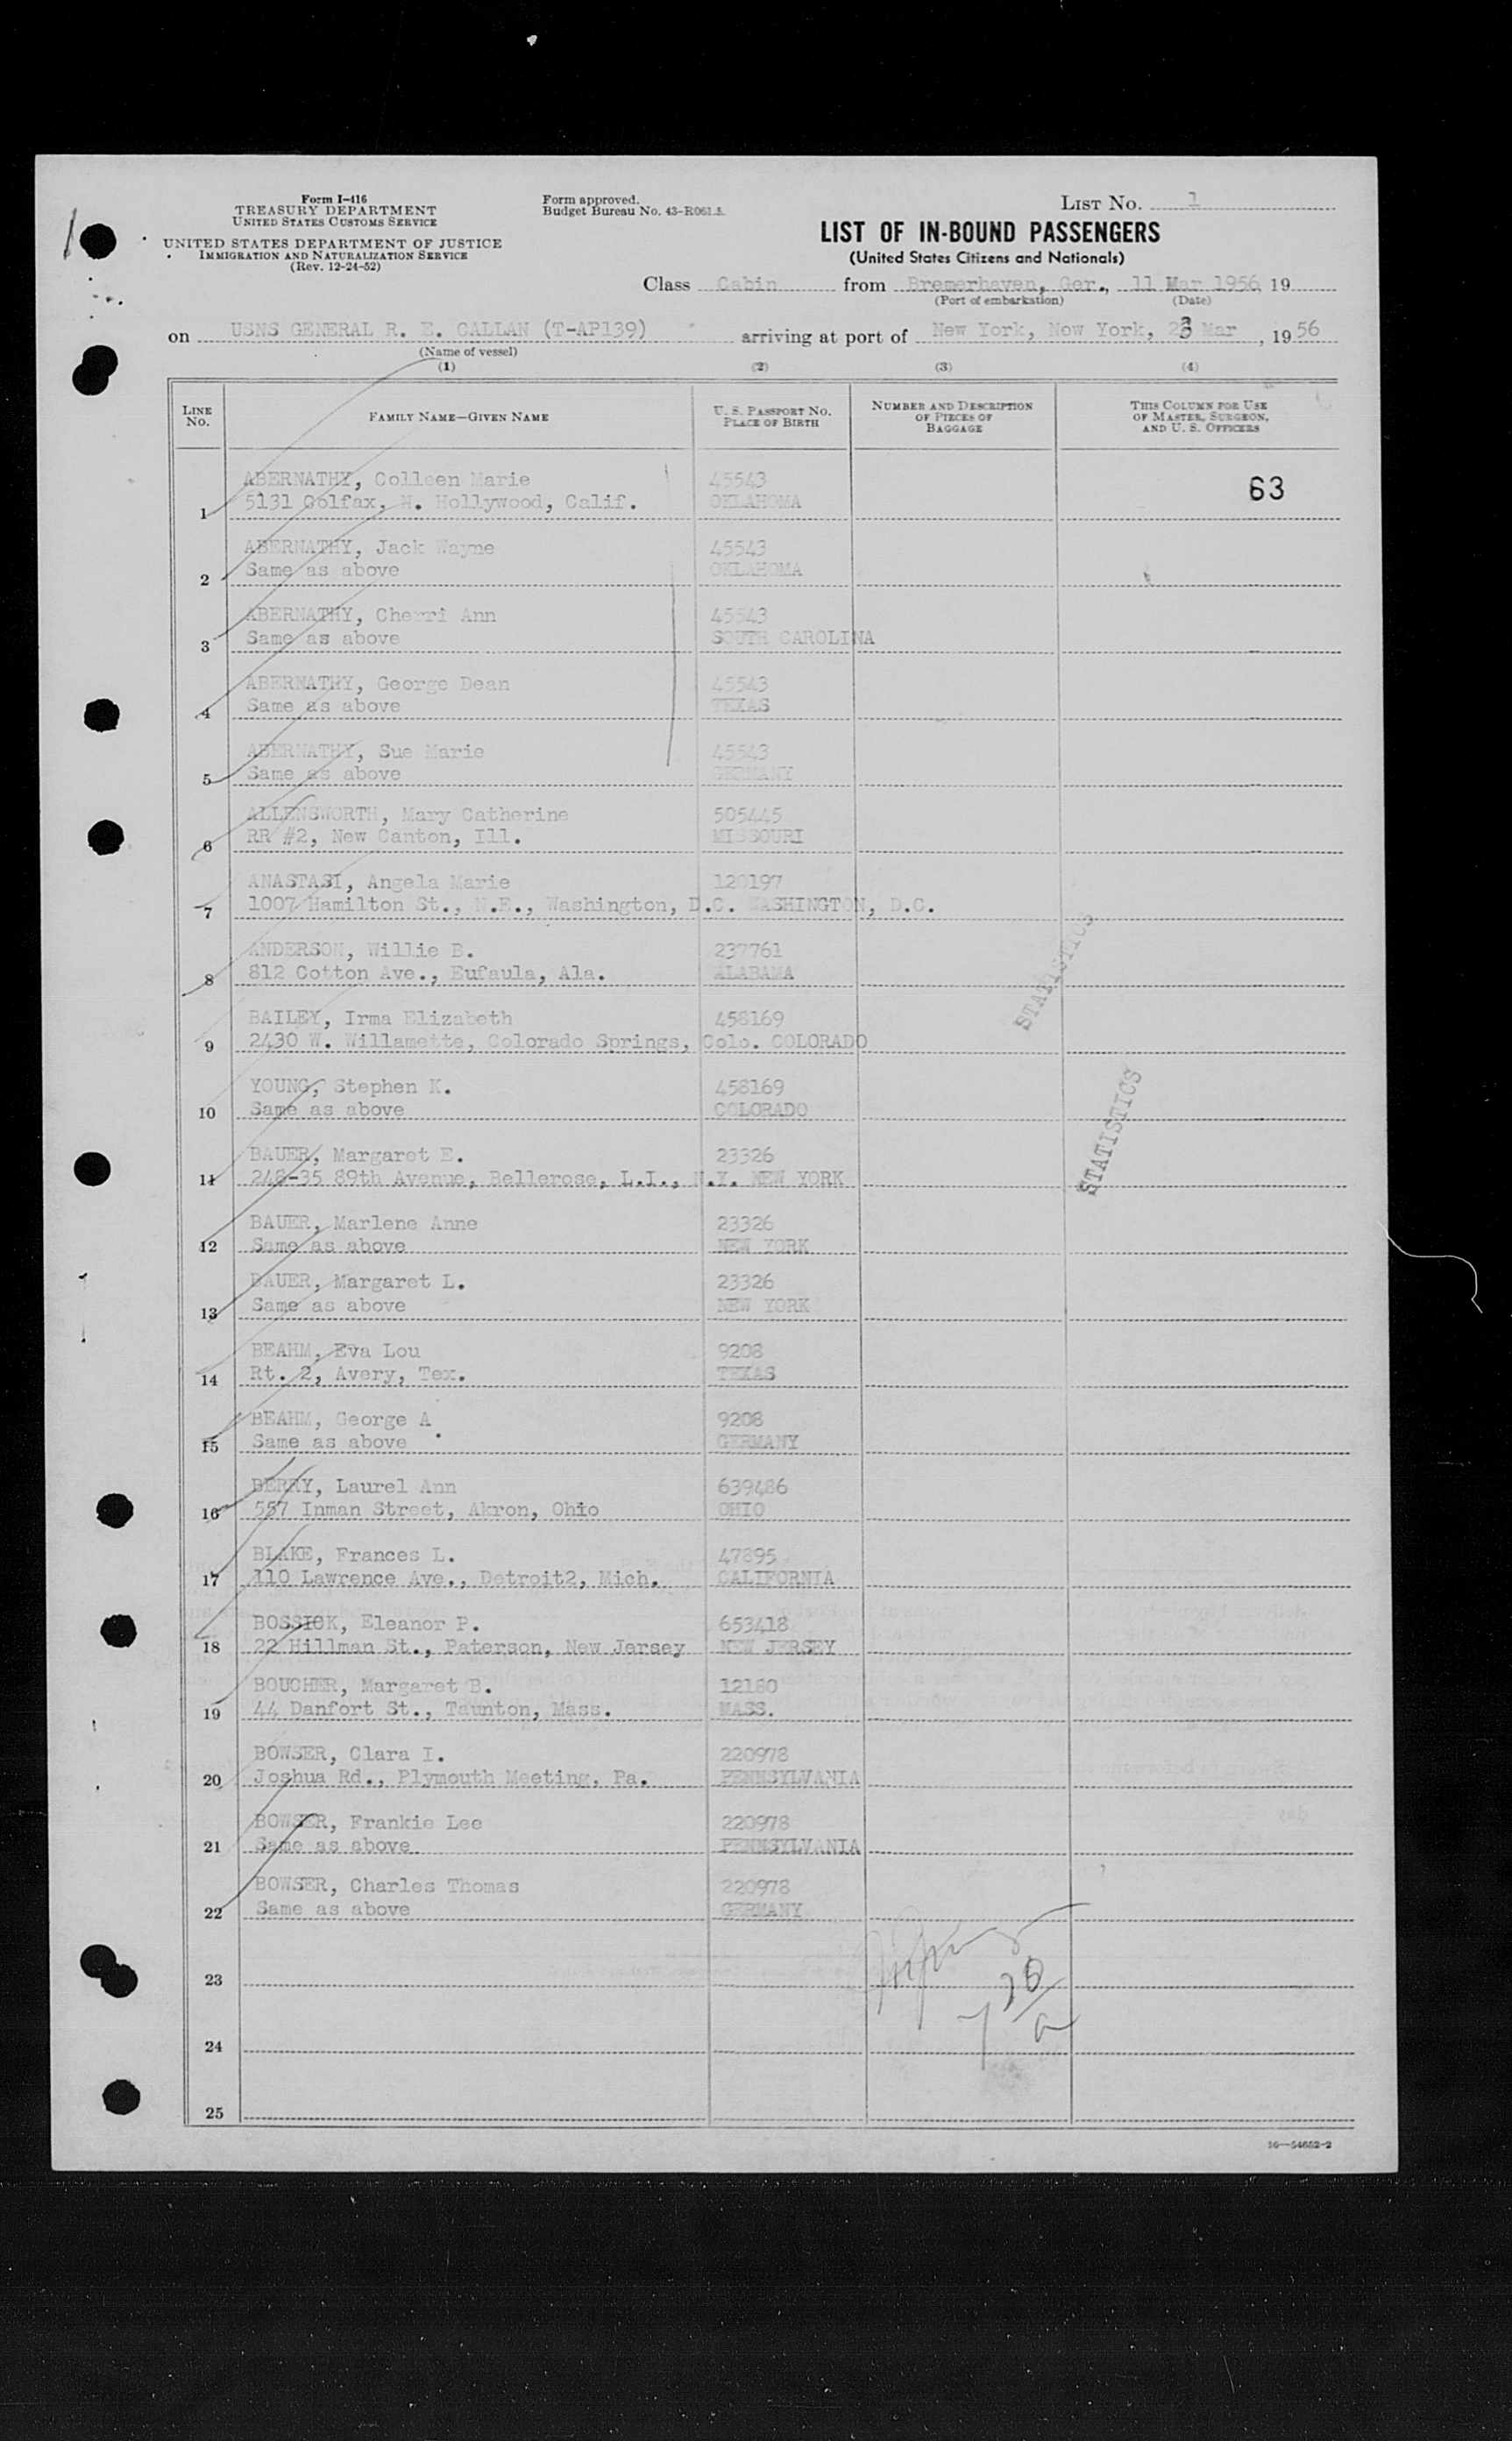 Form I-416
TREASURY DEPARTMENT
UNITED STATES CUSTOMS SERVICE
UNITED STATES DEPARTMENT OF JUSTICE
IMMIGRATION AND NATURALIZATION SERVICE
(Rev. 12-24-52)
Form approved.
Budget Bureau No. 43-R061.5.
LIST NO. 1
LIST OF IN-BOUND PASSENGERS
(United States Citizens and Nationals)
Class Cabin from Bremerhaven, Ger., 11 Mar 1956, 19
(Port of embarkation) (Date)
on USNS GENERAL R. E. CALLAN (T-AP139) arriving at port of New York, Now York, 23 Mar, 1956
(Name of vessel)
(1) (2) (3) (4)
LINE NO. FAMILY NAME—GIVEN NAME U. S. PASSPORT NO. PLACE OF BIRTH NUMBER AND DESCRIPTION OF PIECES OF BAGGAGE THIS COLUMN FOR USE OF MASTER, SURGEON, AND U. S. OFFICERS
ABERNATHY, Colleen Marie 45543 63
1 5131 Colfax, N. Hollywood, Calif. OKLAHOMA
ABERNATHY, Jack Wayne 45543
2 Same as above OKLAHOMA
ABERNATHY, Cherri Ann 45543
3 Same as above SOUTH CAROLINA
ABERNATHY, George Dean 45543
4 Same as above TEXAS
ABERNATHY, Sue Marie 45543
5 Same as above GERMANY
ALLENSWORTH, Mary Catherine 505445
6 RR #2, New Canton, Ill. MISSOURI
ANASTASI, Angela Marie 120197
7 1007 Hamilton St., N.E., Washington, D.C. WASHINGTON, D.C.
ANDERSON, Willie B. 237761
8 812 Cotton Ave., Eufaula, Ala. ALABAMA
STATISTICS
BAILEY, Irma Elizabeth 458169
9 2430 W. Willamette, Colorado Springs, Colo. COLORADO
YOUNG, Stephen K. 458169
10 Same as above COLORADO
STATISTICS
BAUER, Margaret E. 23326
11 248-35 89th Avenue, Bellerose, L.I., N.Y. NEW YORK
BAUER, Marlene Anne 23326
12 Same as above NEW YORK
BAUER, Margaret L. 23326
13 Same as above NEW YORK
BEAHM, Eva Lou 9208
14 Rt. 2, Avery, Tex. TEXAS
BEAHM, George A 9208
15 Same as above GERMANY
BERRY, Laurel Ann 639486
16 557 Inman Street, Akron, Ohio OHIO
BLAKE, Frances L. 47895
17 110 Lawrence Ave., Detroit2, Mich. CALIFORNIA
BOSSICK, Eleanor P. 653418
18 22 Hillman St., Paterson, New Jersey NEW JERSEY
BOUCHER, Margaret B. 12180
19 44 Danfort St., Taunton, Mass. MASS.
BOWSER, Clara I. 220978
20 Joshua Rd., Plymouth Meeting, Pa. PENNSYLVANIA
BOWSER, Frankie Lee 220978
21 Same as above PENNSYLVANIA
BOWSER, Charles Thomas 220978
22 Same as above GERMANY
23
24
25
16—54652-2